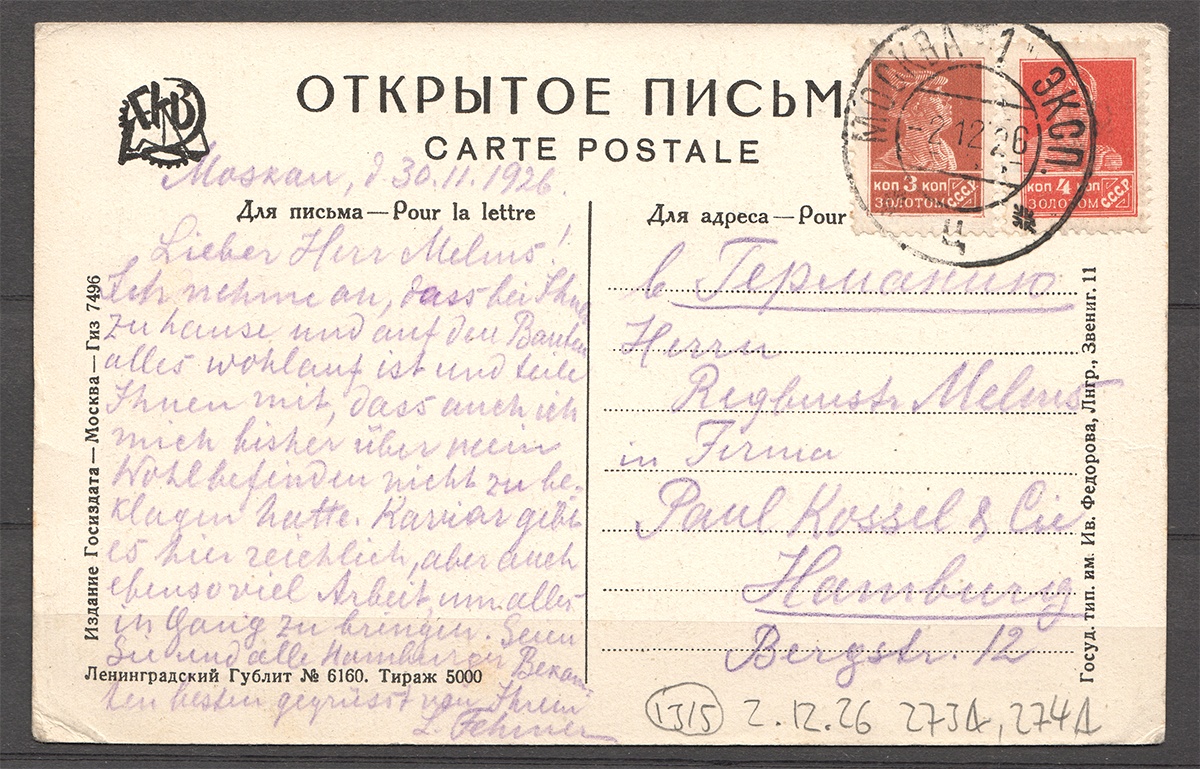 ОТКРЫТОЕ ПИСЬМ
CARTE POSTALE
МОСКВА 1 ЭКСП.
-2.12.26
Ц
КОП 3 КОП
ЗОЛОТОМ
С.С.С.Р.
КОП 4 КОП
ЗОЛОТОМ
С.С.С.Р.
Moskau, d 30.11.1926.
Для письма — Pour la lettre
Lieber Herr Melms!
Ich nehme an, dass bei Ihnen
zu hause und auf den Bauten
alles wohlauf ist und teile
Ihnen mit, dass auch ich
mich bisher über mein
Wohlbefinden nicht zu be-
klagen hatte. gibt
es hier reichlich, aber auch
ebensoviel Arbeit um alles
in Gang zu bringen. Seien
Sie und alle Hamburger Bekann-
ten bestens gegrüsst von Ihrem
Для адреса — Pour
в Германию
Herrn
Regbmstr Melms
in Firma
Paul Kossel & Cie
Hamburg
Bergstr. 12
Издание Госиздата — Москва — Гиз 7496
Ленинградский Гублит № 6160. Тираж 5000
Госуд. тип. им. Ив. Федорова, Лнгр., Звениг. 11
1315 2.12.26 273A, 274A